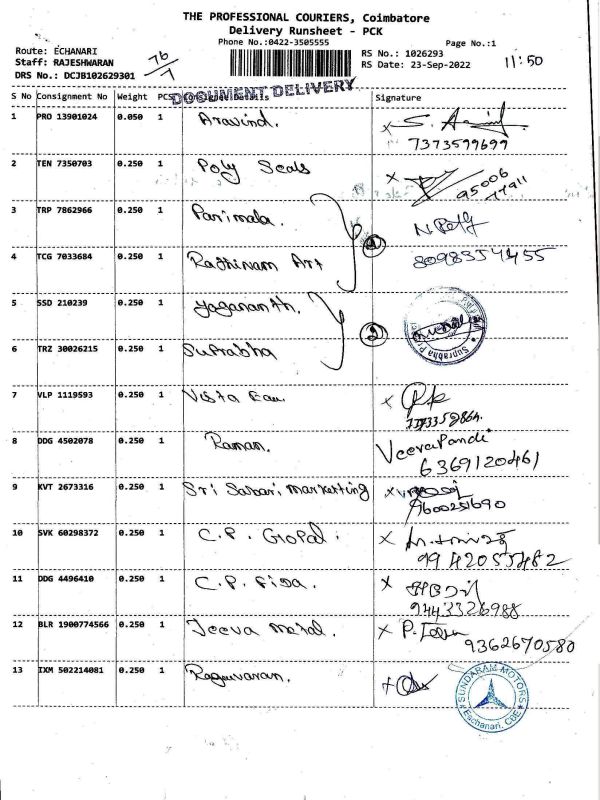 THE PROFESSIONAL COURIERS, Coimbatore
Delivery Runsheet - PCK
Phone No.:0422-3505555
Page No.:1
Route: ECHANARI
Staff: RAJESHWARAN
DRS No.: DCJB102629301
76/7
RS No.: 1026293
RS Date: 23-Sep-2022
11:50
DOCUMENT DELIVERY
S No Consignment No Weight PCS Signature
1 PRO 13901024 0.050 1 Aravind. x S. Aravind
7373599699
2 TEN 7350703 0.250 1 Poly Seals x 95006
77911
3 TRP 7862966 0.250 1 Parimala.
4 TCG 7033684 0.250 1 Rathinam Art 2 8098357455
5 SSD 210239 0.250 1 Yagananth.
6 TRZ 30026215 0.250 1 Suprabha 2 Suprabha
7 VLP 1119593 0.250 1 Vista x
8 DDG 4502078 0.250 1 Raman. VeeraPandi
6369120461
9 KVT 2673316 0.250 1 Sri Sabari marketing x
9600251690
10 SVK 60298372 0.250 1 C.P. Gopal. x
9942055482
11 DDG 4496410 0.250 1 C.P. x
9443326988
12 BLR 1900774566 0.250 1 Jeeva Metal. x P.
9362670580
13 IXM 502214081 0.250 1 Raguvaran. x
SUNDARAM MOTORS
Eachanari, CBE